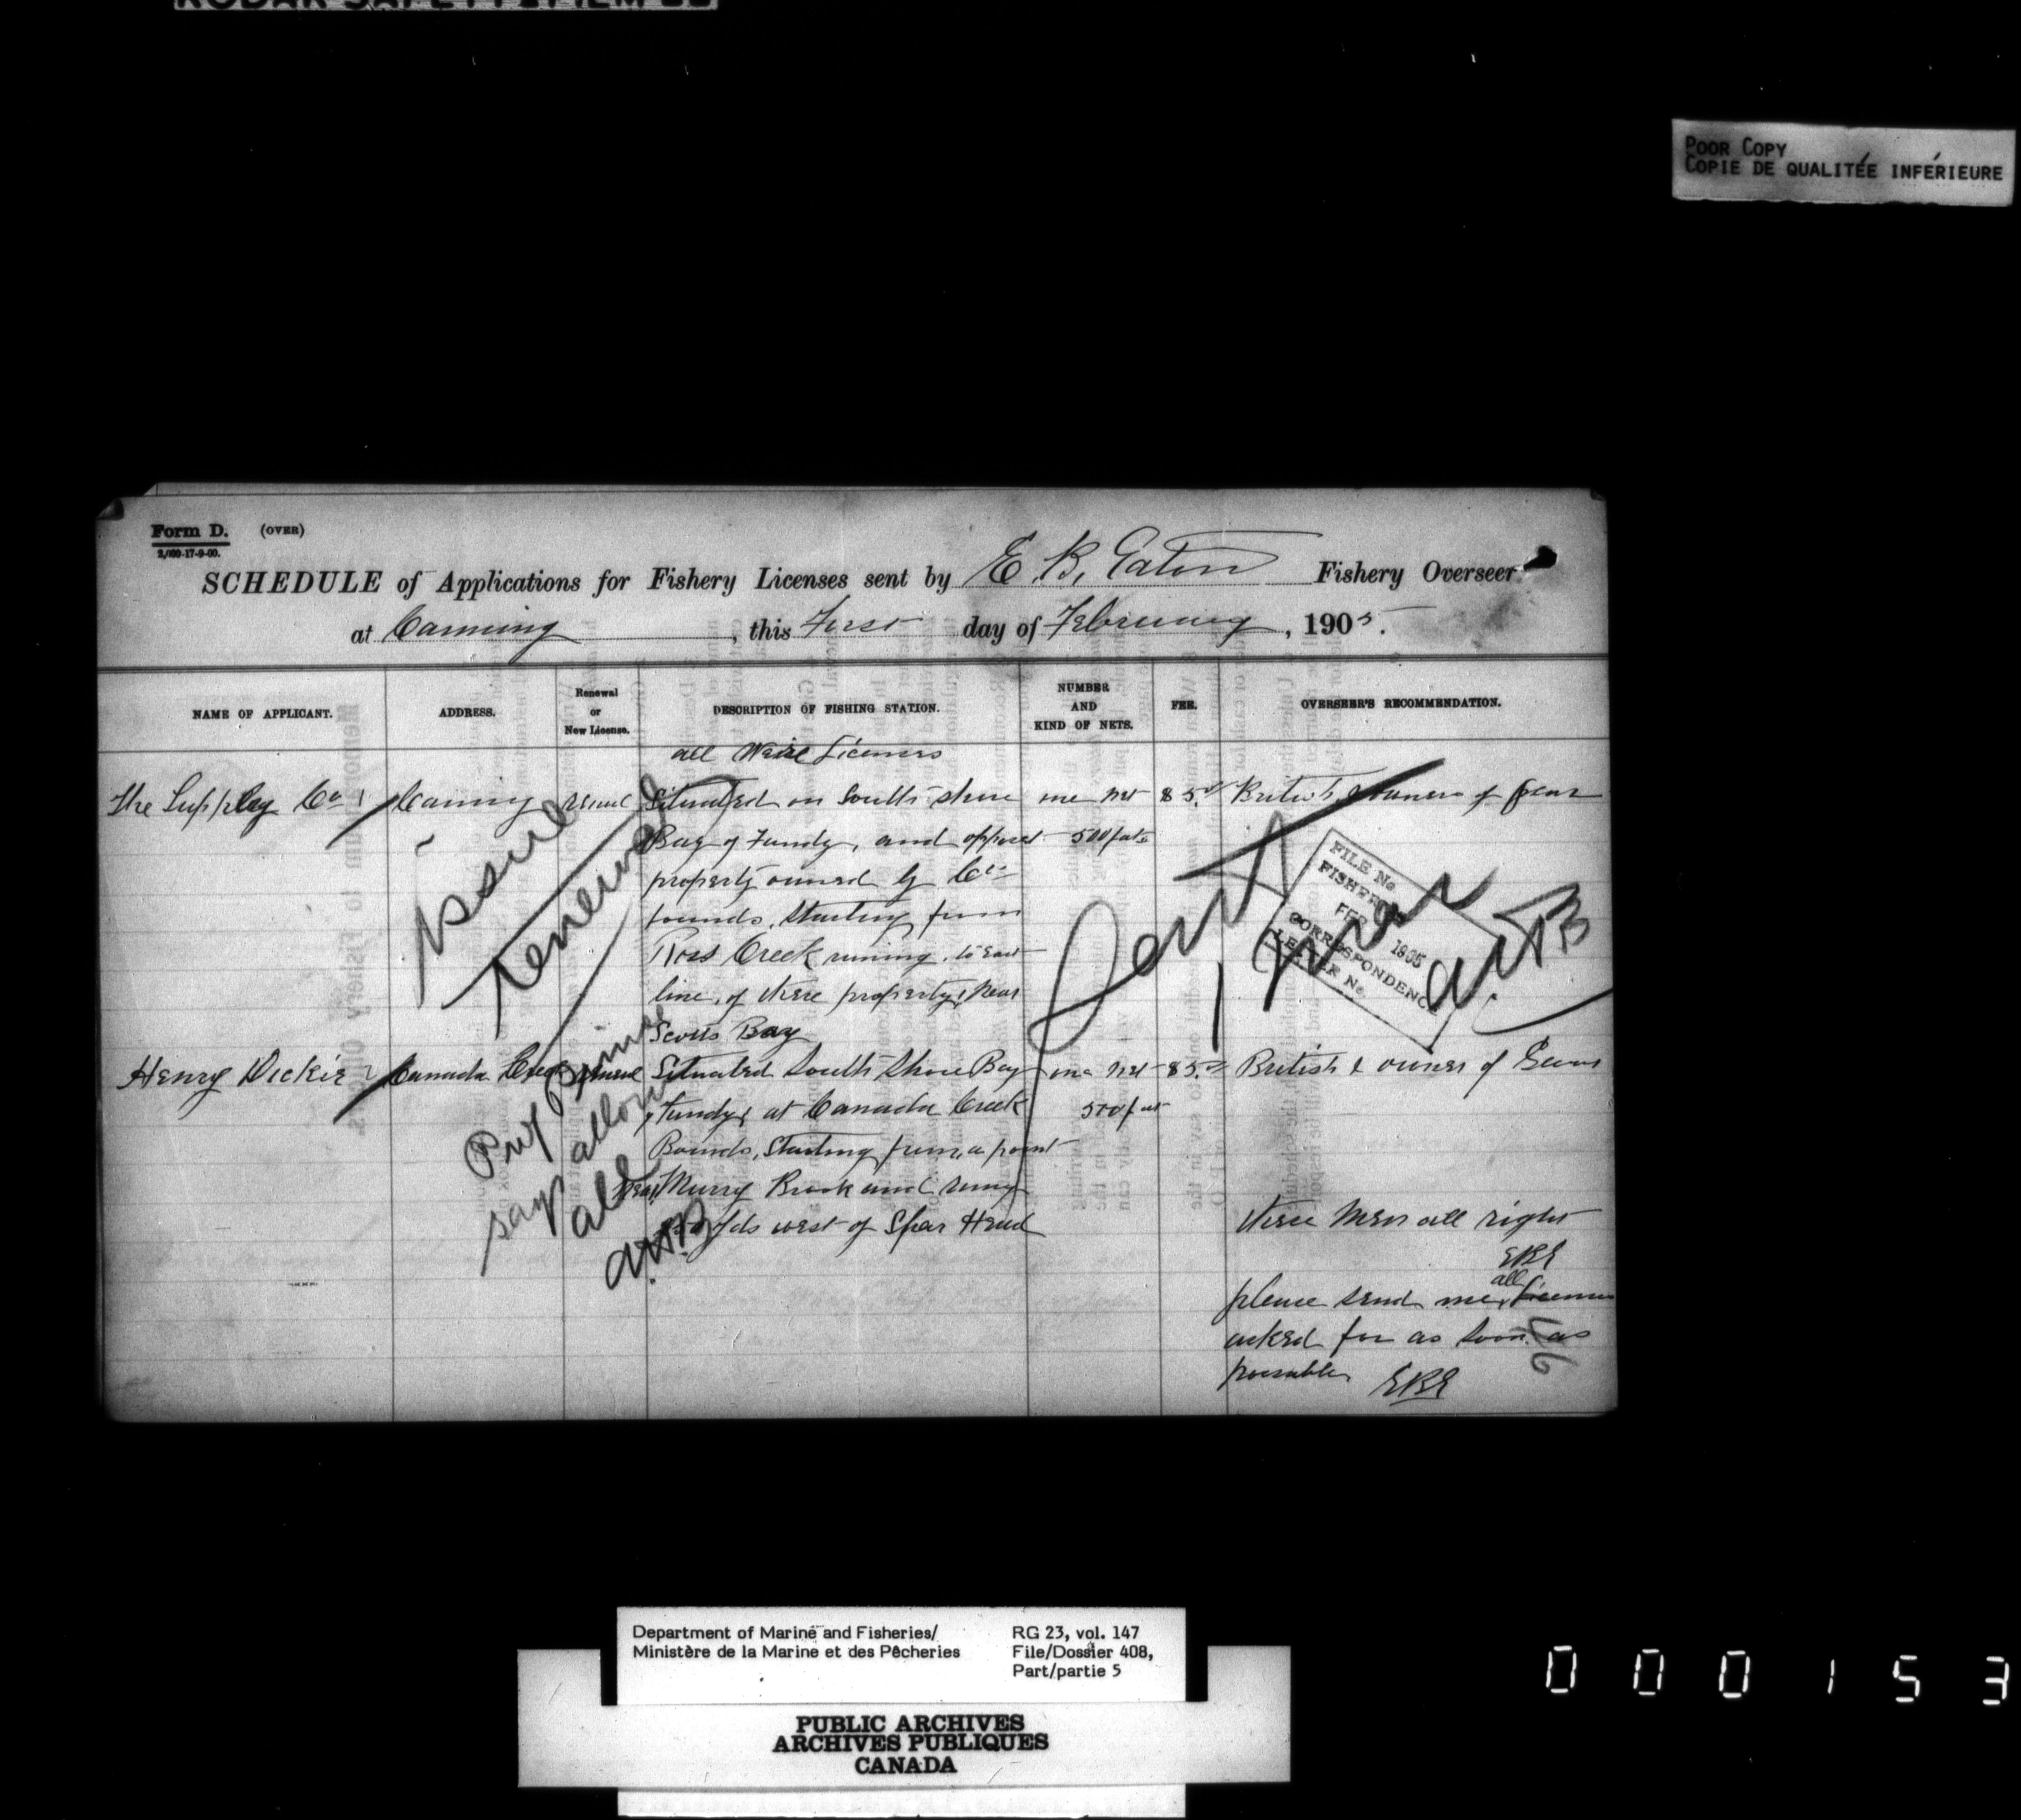 KODAK SAFETY FILM
POOR COPY
COPIE DE QUALITÉE INFÉRIEURE
Form D. (OVER)
2,000-17-9-00.
SCHEDULE of Applications for Fishery Licenses sent by E B, Eaton Fishery Overseer
at Canning, this First day of February, 1905.
NAME OF APPLICANT.
ADDRESS.
Renewal
or
New License.
DESCRIPTION OF FISHING STATION.
NUMBER
AND
KIND OF NETS.
FEE.
OVERSEER'S RECOMMENDATION.
all Weire Licenses
The Supply Co Canning Situated on South shore one net $5. British owners of gear
Bay of Fundy, and 500 feet
property owned by Co
bounds, Starting from
Ross Creek runing to East
line, of there property, near
Scotts Bay
Henry Dickie Canada Creek Situated South Shore Bay one net $5. British & owner of Gear
Fundy, at Canada Creek 500 feet
Bounds, Starting from, a point
Near Murry Brook and runing
west of Spar Head
issue
renewal
Prof Prince
says allow
all
A.W.B
Sent
FILE No
FISHERIES
FEB 1905
CORRESPONDENCE
LETTER No
these men all right
EBE
please send me all Licenses
asked for as soon as
possible EBE
Department of Marine and Fisheries/
Ministère de la Marine et des Pêcheries
RG 23, vol. 147
File/Dossier 408,
Part/partie 5
PUBLIC ARCHIVES
ARCHIVES PUBLIQUES
CANADA
000153